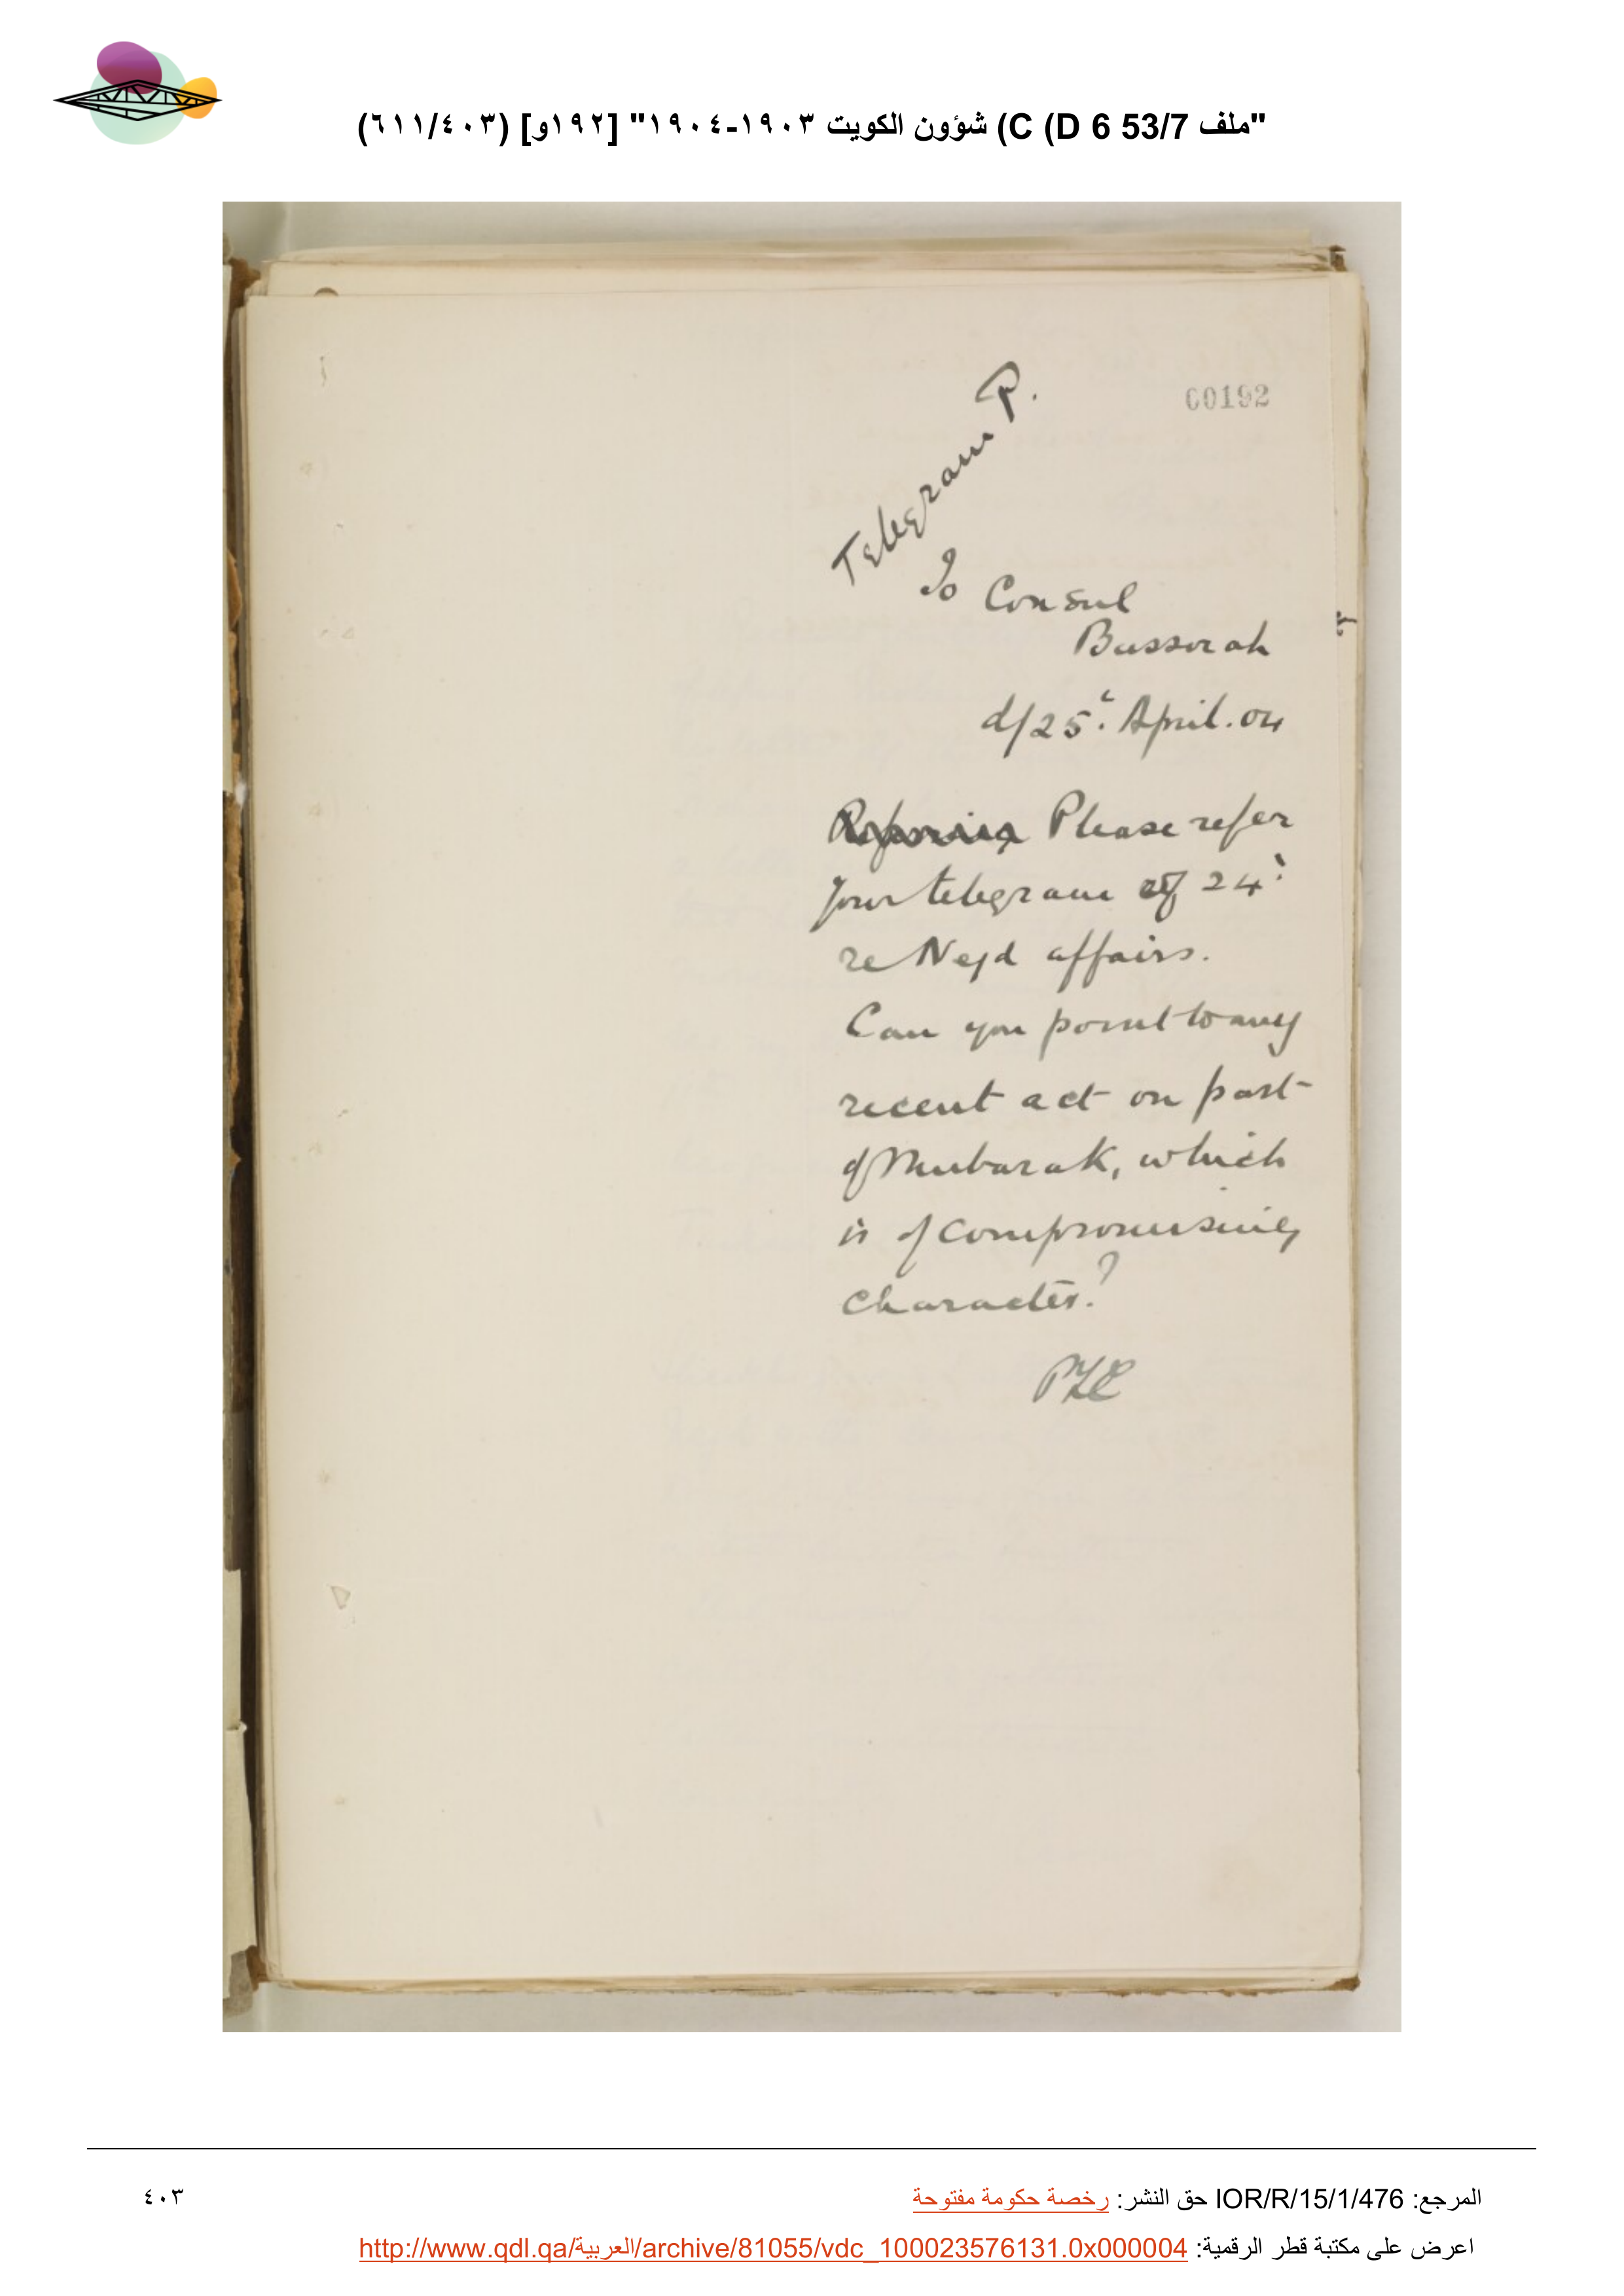 "ملف 53/7 D 6) C) شؤون الكويت ١٩٠٣-١٩٠٤" [١٩٢و] (٤٠٣/٦١١)
00192
Telegram P.
To Consul
Bussorah
d/25: April. 04
Please refer
your telegram of 24:
re Nejd affairs.
Can you point to any
recent act on part
of Mubarak, which
is of compromising
character?
PZC
المرجع: IOR/R/15/1/476 حق النشر: رخصة حكومة مفتوحة
٤٠٣
اعرض على مكتبة قطر الرقمية: http://www.qdl.qa/العربية/archive/81055/vdc_100023576131.0x000004